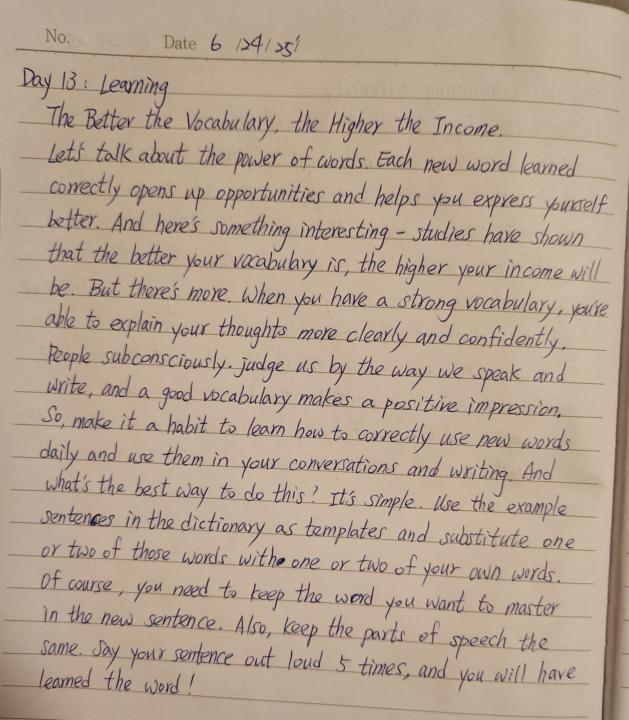 No.
Date 6/24/25'
Day 13: Learning
The Better the Vocabulary, the Higher the Income.
Let's talk about the power of words. Each new word learned
correctly opens up opportunities and helps you express yourself
better. And here's something interesting - studies have shown
that the better your vocabulary is, the higher your income will
be. But there's more. When you have a strong vocabulary, you're
able to explain your thoughts more clearly and confidently.
People subconsciously judge us by the way we speak and
write, and a good vocabulary makes a positive impression.
So, make it a habit to learn how to correctly use new words
daily and use them in your conversations and writing. And
what's the best way to do this? It's simple. Use the example
sentences in the dictionary as templates and substitute one
or two of those words with one or two of your own words.
Of course, you need to keep the word you want to master
in the new sentence. Also, keep the parts of speech the
same. Say your sentence out loud 5 times, and you will have
learned the word!